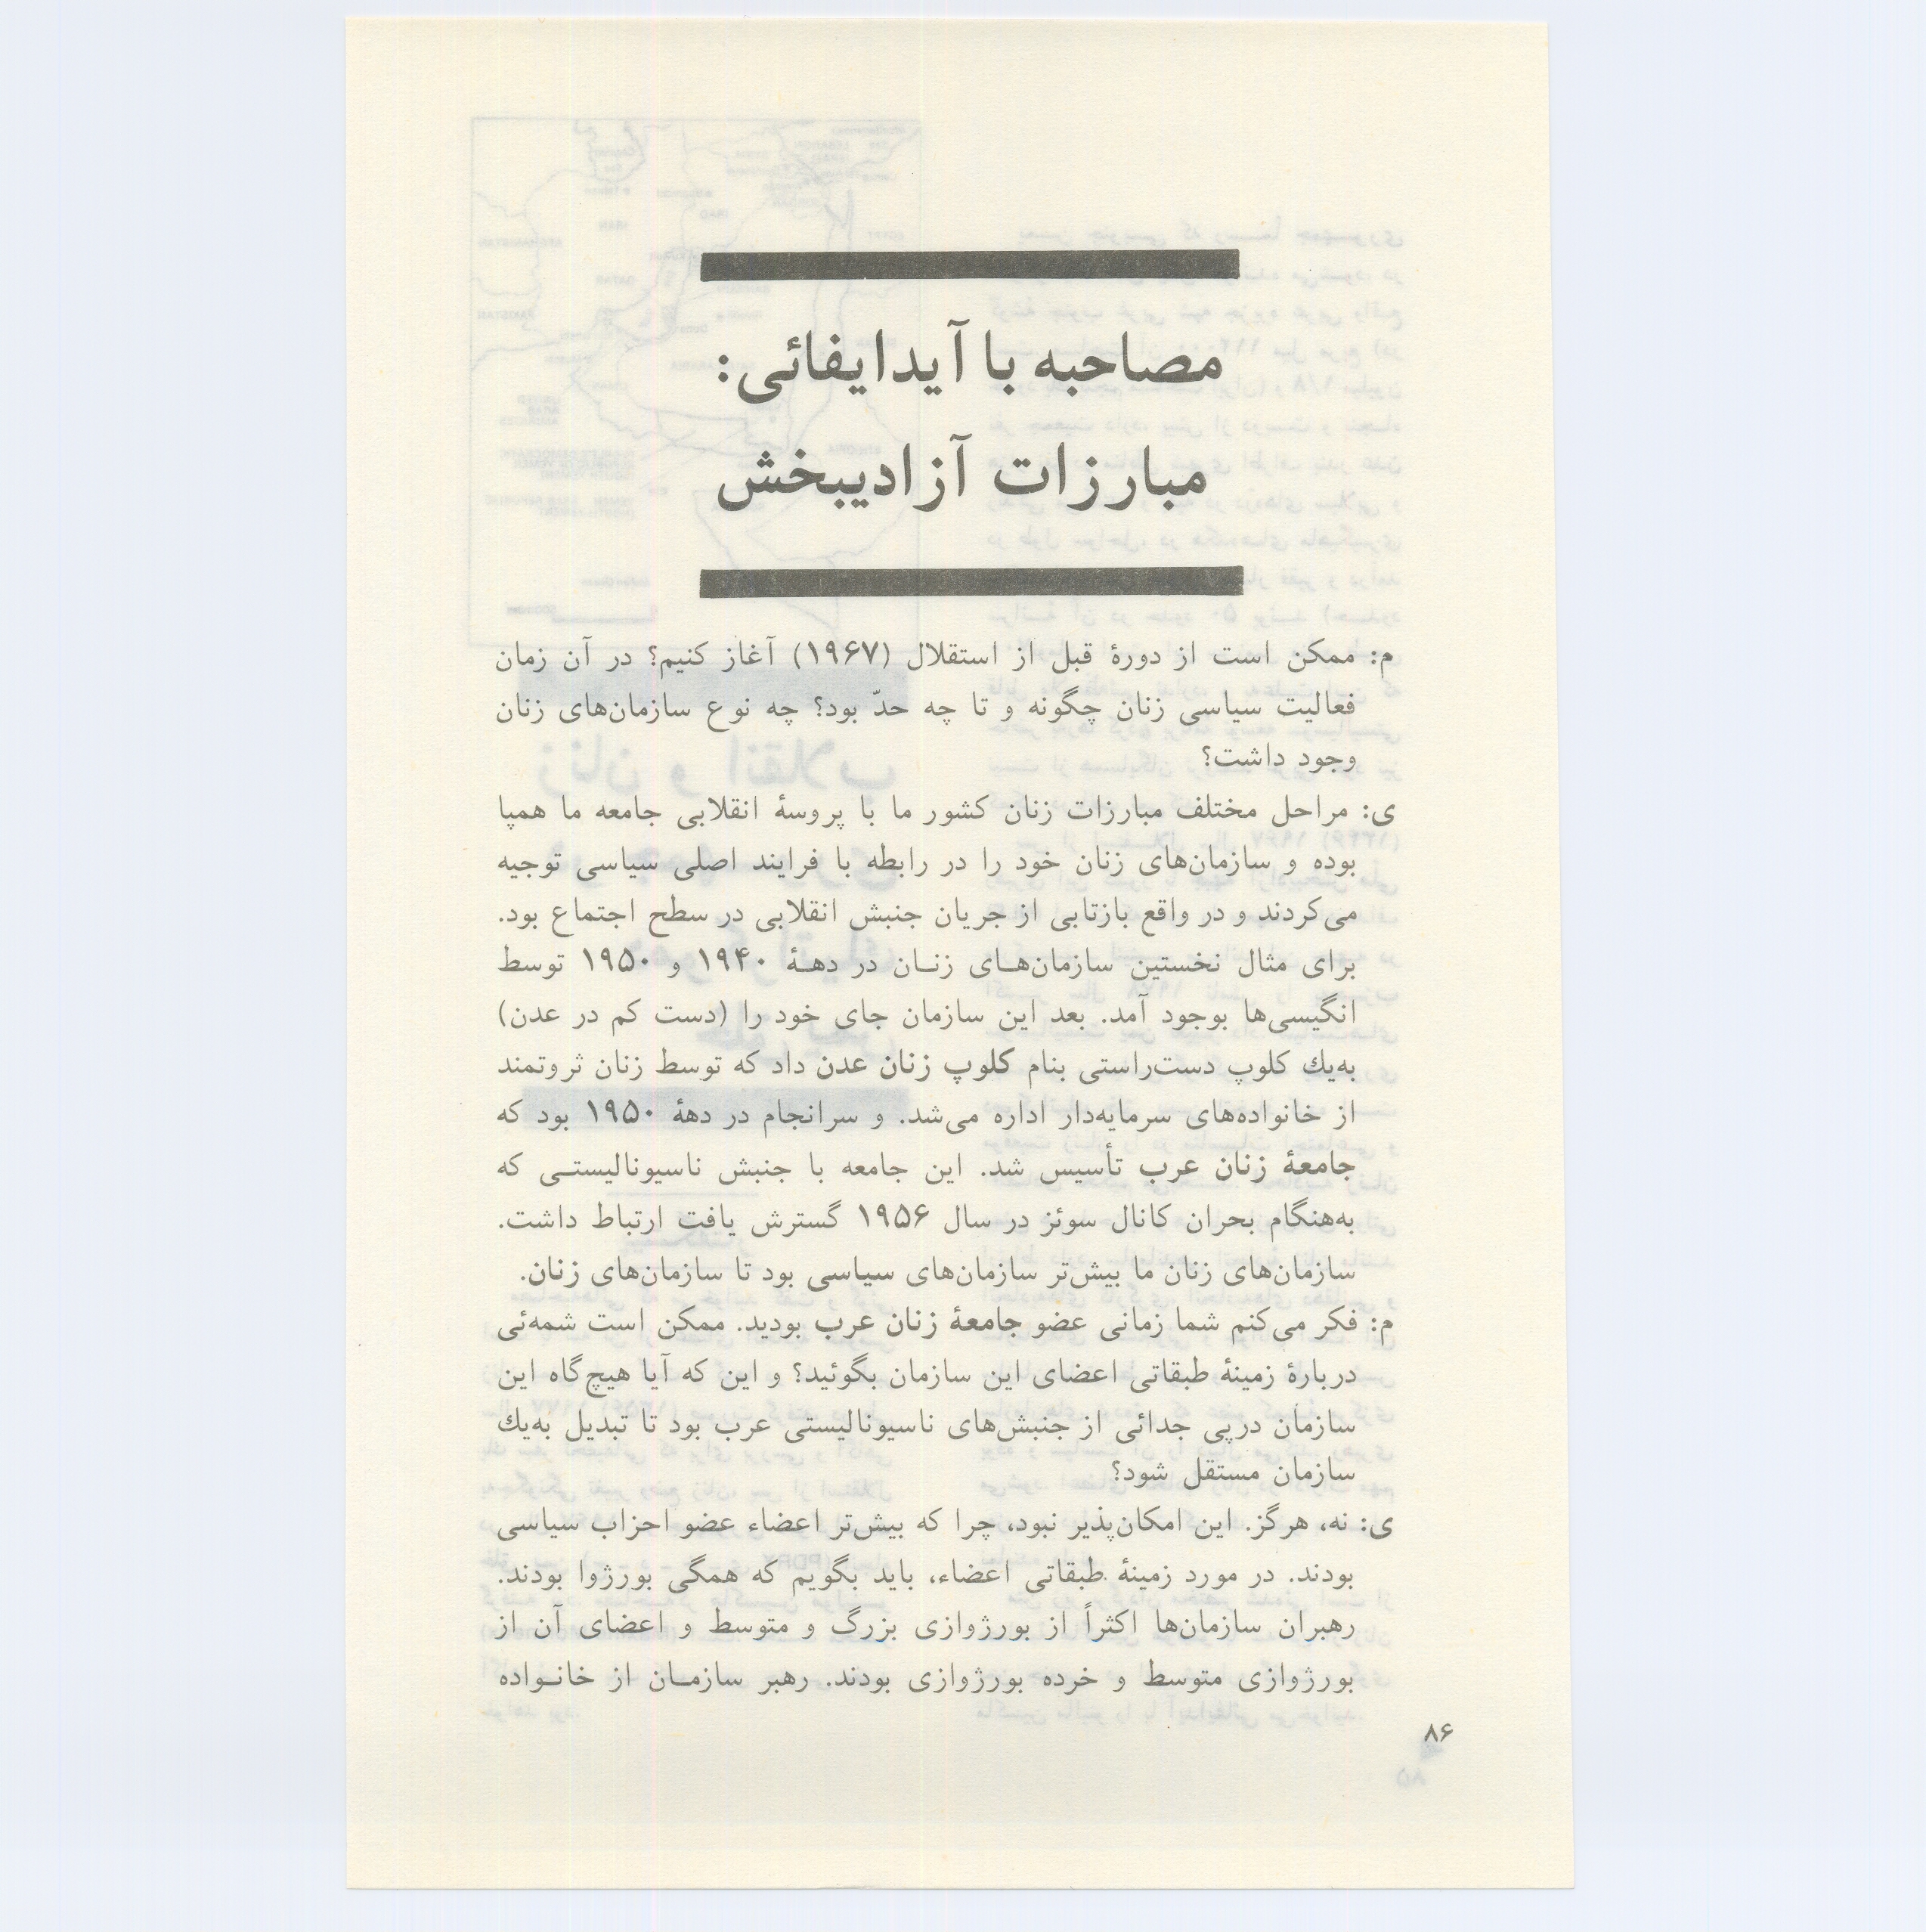 مصاحبه با آیدایفائی:
مبارزات آزادیبخش
م: ممکن است از دورهٔ قبل از استقلال (۱۹۶۷) آغاز کنیم؟ در آن زمان
فعالیت سیاسی زنان چگونه و تا چه حدّ بود؟ چه نوع سازمان‌های زنان
وجود داشت؟
ی: مراحل مختلف مبارزات زنان کشور ما با پروسهٔ انقلابی جامعه ما همپا
بوده و سازمان‌های زنان خود را در رابطه با فرایند اصلی سیاسی توجیه
می‌کردند و در واقع بازتابی از جریان جنبش انقلابی در سطح اجتماع بود.
برای مثال نخستین سازمان‌هـای زنـان در دهـهٔ ۱۹۴۰ و ۱۹۵۰ توسط
انگیسی‌ها بوجود آمد. بعد این سازمان جای خود را (دست کم در عدن)
به‌یك کلوپ دست‌راستی بنام کلوپ زنان عدن داد که توسط زنان ثروتمند
از خانواده‌های سرمایه‌دار اداره می‌شد. و سرانجام در دههٔ ۱۹۵۰ بود که
جامعهٔ زنان عرب تأسیس شد. این جامعه با جنبش ناسیونالیستـی که
به‌هنگام بحران کانال سوئز در سال ۱۹۵۶ گسترش یافت ارتباط داشت.
سازمان‌های زنان ما بیش‌تر سازمان‌های سیاسی بود تا سازمان‌های زنان.
م: فکر می‌کنم شما زمانی عضو جامعهٔ زنان عرب بودید. ممکن است شمه‌ئی
دربارهٔ زمینهٔ طبقاتی اعضای این سازمان بگوئید؟ و این که آیا هیچ‌گاه این
سازمان درپی جدائی از جنبش‌های ناسیونالیستی عرب بود تا تبدیل به‌یك
سازمان مستقل شود؟
ی: نه، هرگز. این امکان‌پذیر نبود، چرا که بیش‌تر اعضاء عضو احزاب سیاسی
بودند. در مورد زمینهٔ طبقاتی اعضاء، باید بگویم که همگی بورژوا بودند.
رهبران سازمان‌ها اکثراً از بورژوازی بزرگ و متوسط و اعضای آن از
بورژوازی متوسط و خرده بورژوازی بودند. رهبر سازمـان از خانـواده
۸۶